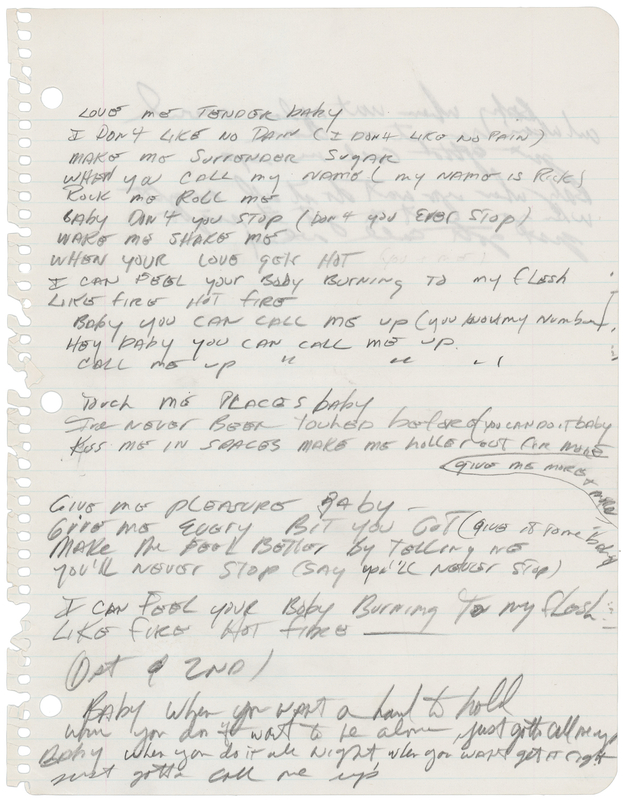 LOVE ME TENDER baby
I DON4 LIKE NO PAIN (I DON4 LIKE NO PAIN)
MAKE ME SURRENDER SUGAR
WHEN YOU CALL MY NAME (MY NAME IS RICK)
ROCK ME ROLL ME
BABY DON4 YOU STOP (DON4 YOU EVER STOP)
WAKE ME SHAKE ME
WHEN YOUR LOVE GETS HOT
I CAN FEEL YOUR BODY BURNING TO MY FLESH
LIKE FIRE HOT FIRE
BABY YOU CAN CALL ME UP (YOU KNOW MY NUMBER)
HEY BABY YOU CAN CALL ME UP.
CALL ME UP " " " (
Touch ME PLACES baby
I'VE NEVER BEEN TOUHED before (YOU CAN DO IT baby
KISS ME IN SPACES MAKE ME holler OUT FOR MORE
(GIVE ME MORE & MORE
GIVE ME PLEASURE BABY -
GIVE ME EVERY BIT YOU GOT (GIVE IT TO ME baby
MAKE ME FEEL BETTER BY TELLING ME
YOU'LL NEVER STOP (SAY YOU'LL NEVER STOP)
I CAN FEEL YOUR BODY BURNING TO MY FLESH
LIKE FIRE HOT FIRE
1st & 2ND)
BABY when you want a hand to hold
when you don't want to be alone, just gotta call me up
BABY when you do it all Night when you want get it right
just gotta call me up